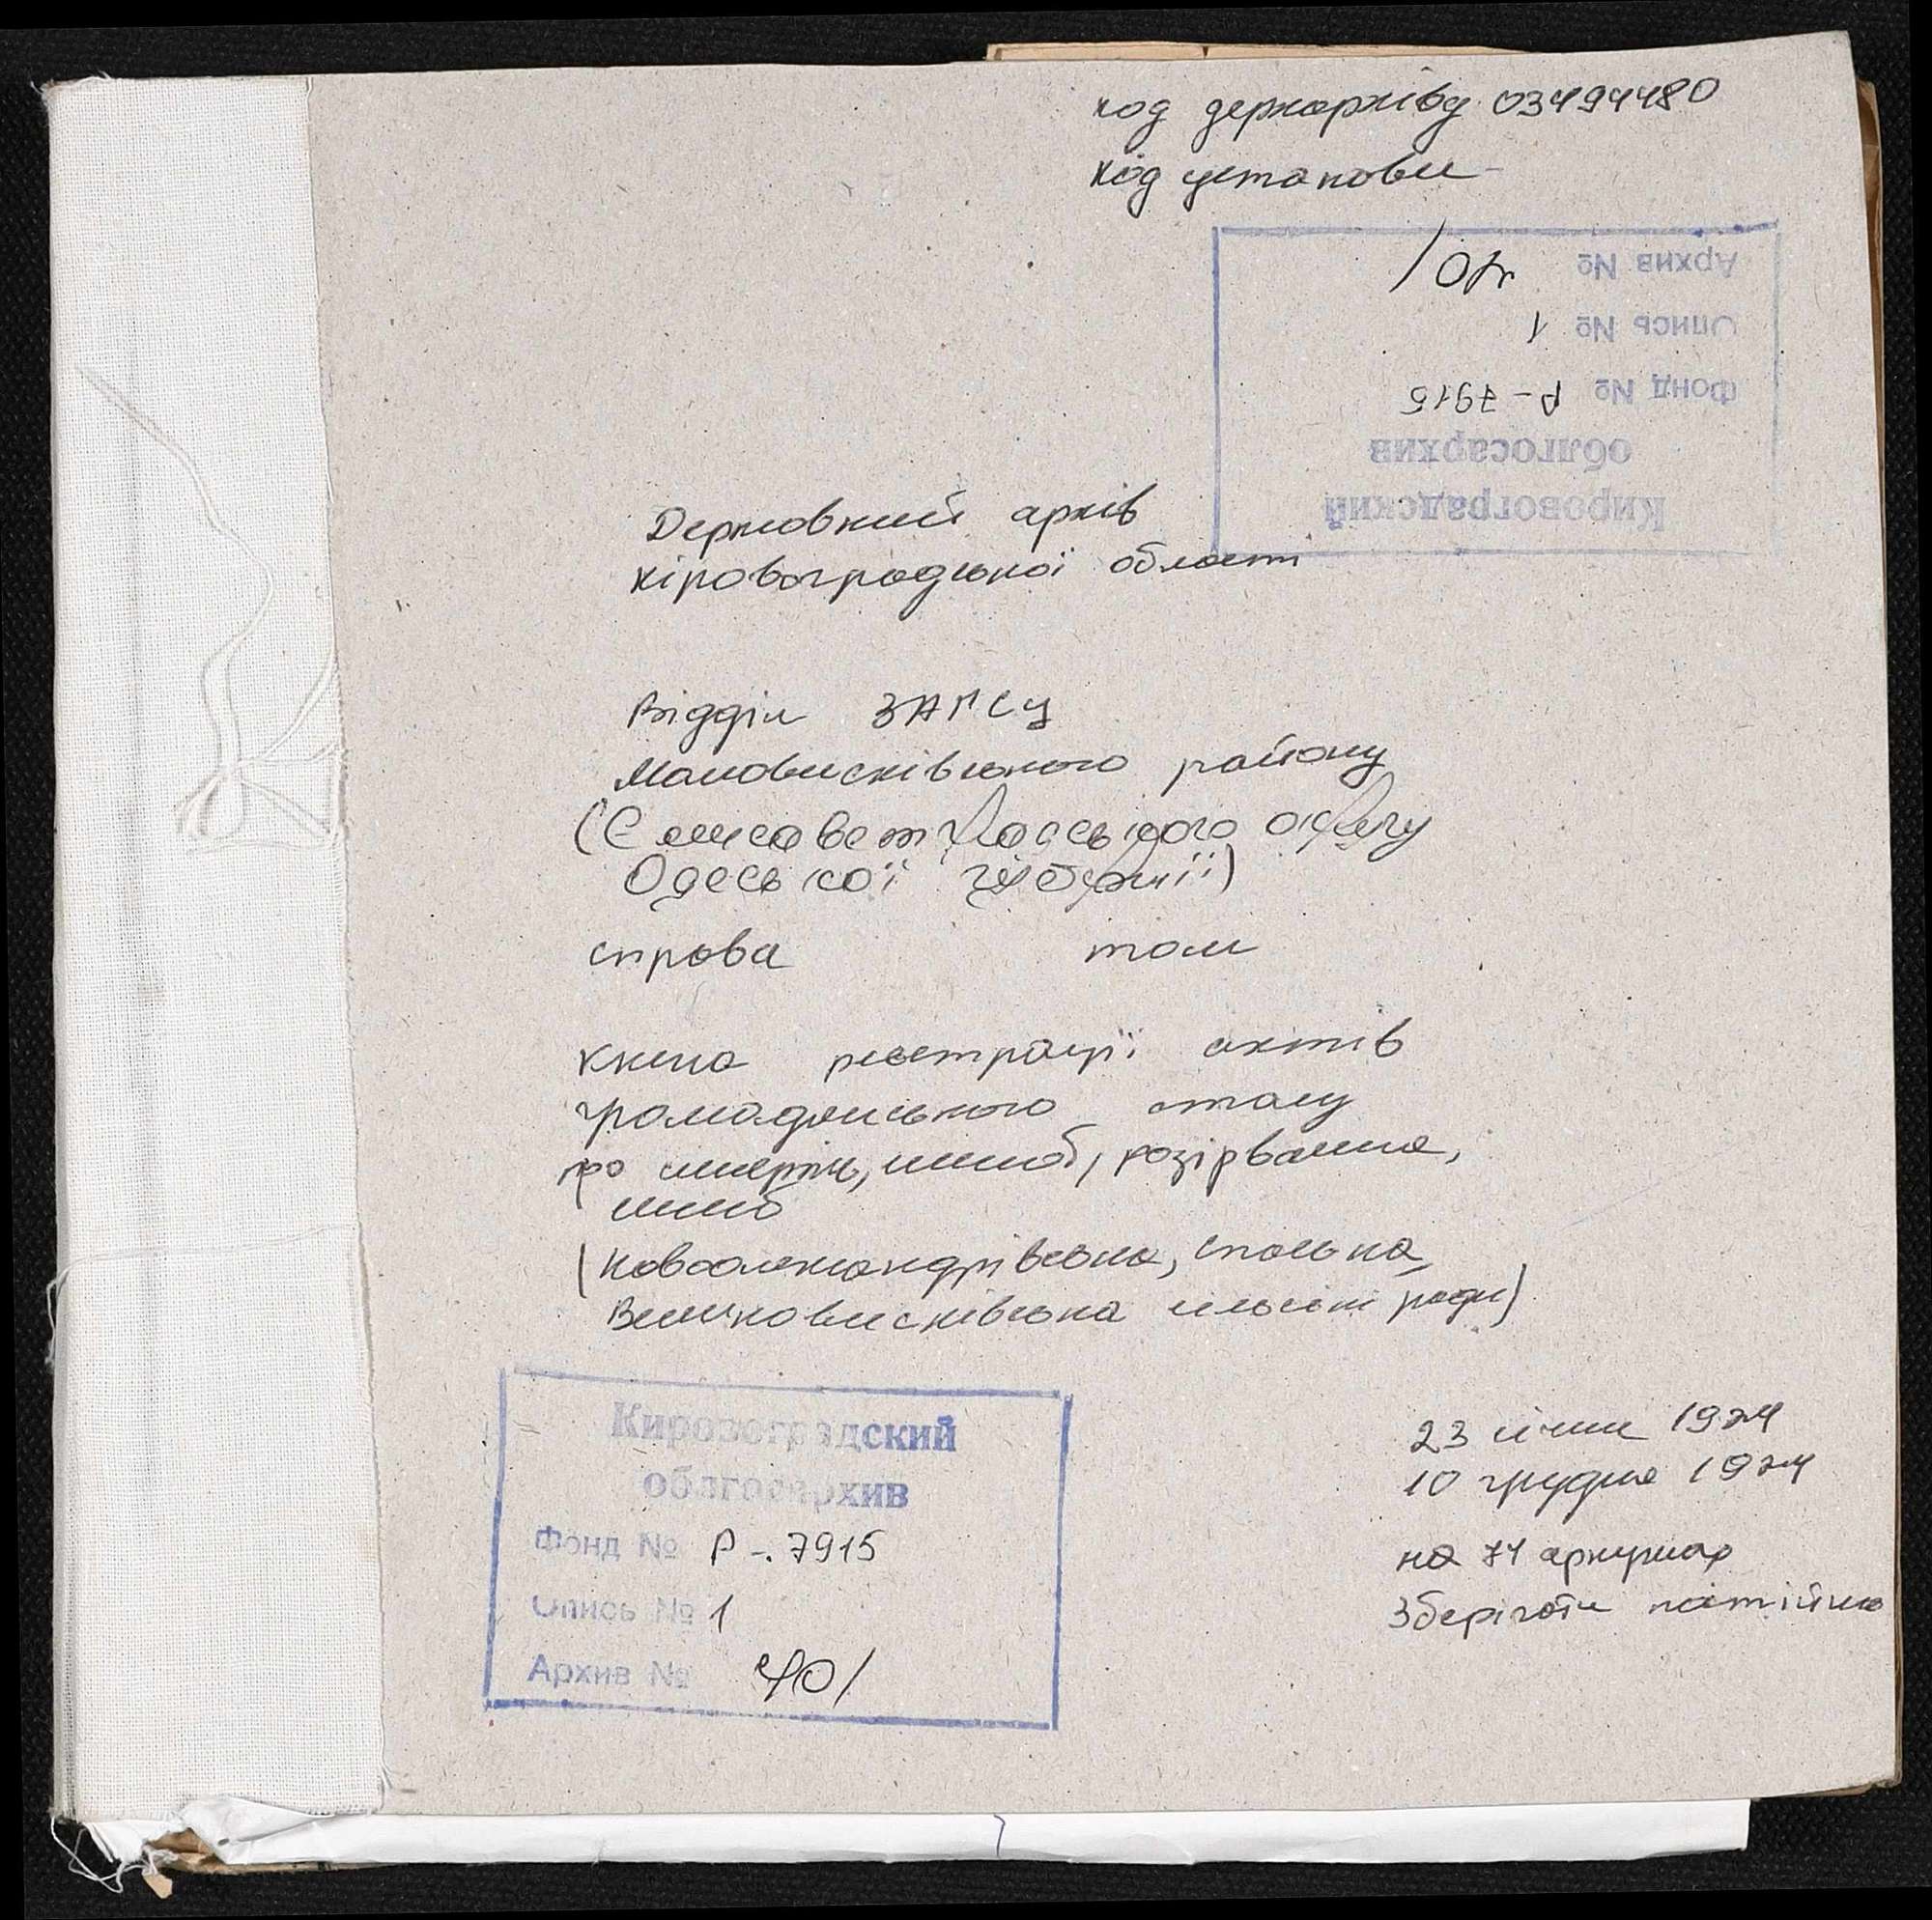 код держархіву 03494480
код установи
Кировоградский
облгосархив
Фонд № Р-7915
Опись № 1
Архив № 401
Державний архів
Кіровоградської області
Відділ ЗАГСу
Маловисківського району
(Єлисаветградського округу
Одеської губернії)
справа том
Книга реєстрації актів
громадянського стану
про смерть, шлюб, розірвання,
шлюб
(Новоолександрівська,
Великовисківська сільські ради)
Кировоградский
облгосархив
Фонд № Р-7915
Опись № 1
Архив № 401
23 січня 1924
10 грудня 1924
на 74 аркушах
Зберігати постійно